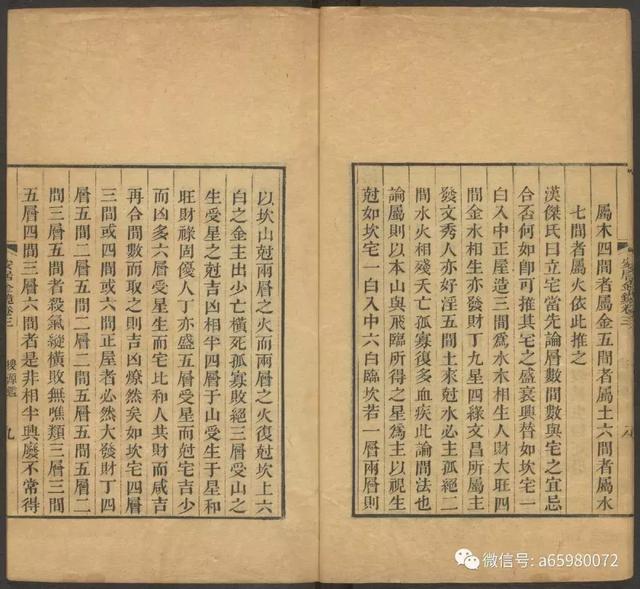 屬木四間者屬金五間者屬土六間者屬水
七間者屬火依此推之
漢傑氏曰立宅當先論層數間數與宅之宜忌
合否何如卽可推其宅之盛衰興替如坎宅一
白入中正屋造三間爲水木相生人財大旺四
間金水相生亦發財丁九星四綠文昌所屬主
發文秀人亦好淫五間土來尅水必主孤絕二
間水火相殘夭亡孤寡復多血疾此論間法也
論屬則以本山與飛臨所得之星爲主以視生
尅如坎宅一白入中六白臨坎若一層兩層則
以坎山尅兩層之火而兩層之火復尅坎上六
白之金主出少亡橫死孤寡敗絕三層受山之
生受星之尅吉凶相半四層于山受生于星和
旺財祿固優人丁亦盛五層受星而尅宅吉少
而凶多六層受星生而宅比和人共財而咸吉
再合間數而取之則吉凶燎然矣如坎宅四層
三間或四間或六間正屋者必然大發財丁四
層五間二層五間二層二間五層五間五層二
間三層五間者殺氣縱橫敗無噍類三層三間
五層四間三層六間者是非相半興廢不常得
九
微信号: a65980072